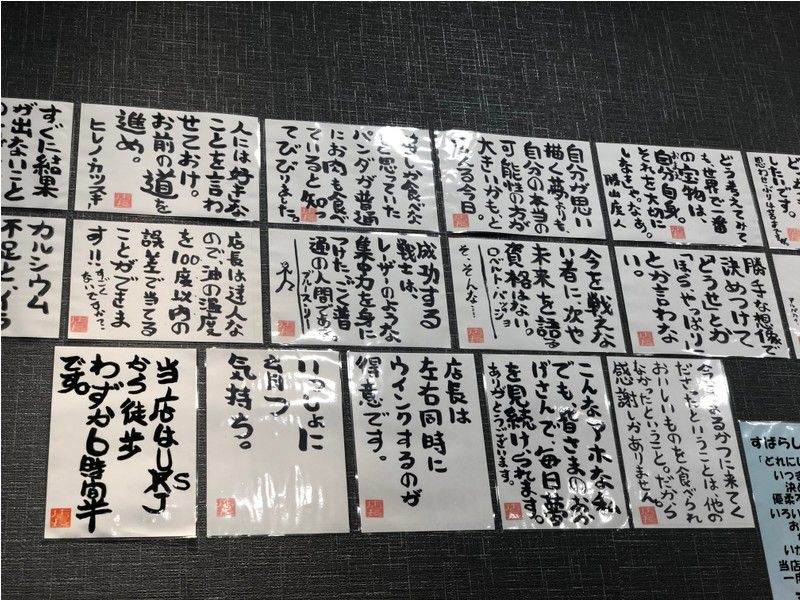 したいです。
どう考えてみて
も、世界で一番
の宝物は、
自分自身。
それを大切に
しなきゃ。なあ。
自分が思い
描く夢よりも、
自分の本当の
可能性の方が
大きいかもと
る今日。
しか食べない
と思っていた
パンダが普通
にお肉も食べ
ていると知っ
てびびりました。
人には好きな
ことを言わ
せておけ。
お前の道を
進め。
ヒレノ・カツスキ
すぐに結果
が出ないこと
勝手な想像で
決めつけて
どうせとか
「ほらやっぱり」
とか言わな
い。
今を戦えな
い者に次や
未来を語る
資格はない。
ロベルト・バージョ
そ、そんな…
成功する
戦士は、
レーザーのような
集中力を身に
つけたごく普
通の人間である。
ブルース・リー
店長は達人な
ので油の温度
を100度以内の
誤差で当てる
ことができま
す!!すごく
ないですか?
カルシウム
不足と、イラ
今こまるかつに来てく
ださったということは、他の
おいしいものを食べられ
なかったということ。だから
感謝しかありません。
こんなアホな私
でも、皆さまのおか
げさんで、毎日夢
を見続けられます。
ありがとうございます。
店長は
左右同時に
ウインクするのが
得意です。
いっしょに
育つ
気持ち。
当店はUSJ
から徒歩
わずか6時間半
です。
すばらし
「どれに
いつも
決
優柔不
いろい
お
いた
当店
一月